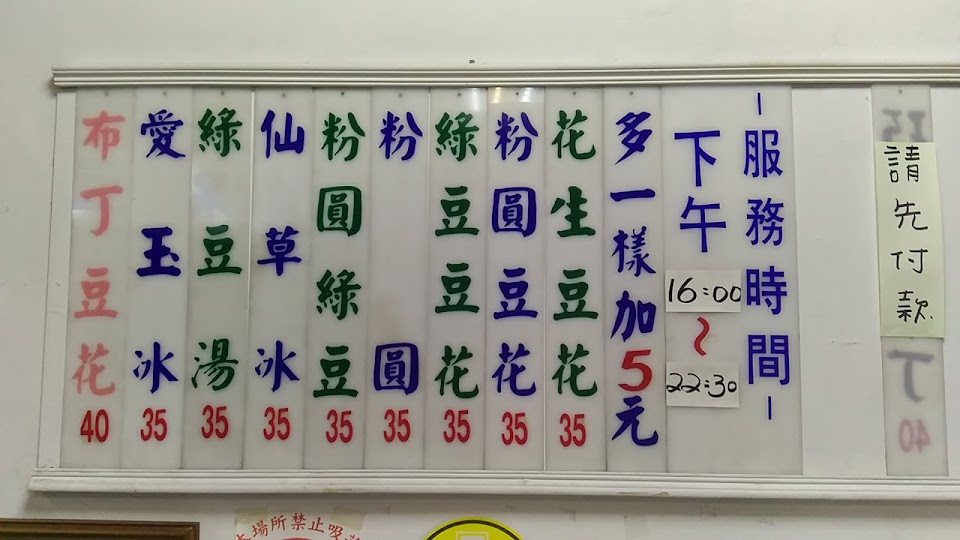 請先付款
－服務時間－
下午
16:00
～
22:30
多一樣加5元
花生豆花 35
粉圓豆花 35
綠豆豆花 35
粉圓 35
粉圓綠豆 35
仙草冰 35
綠豆湯 35
愛玉冰 35
布丁豆花 40
場所禁止吸